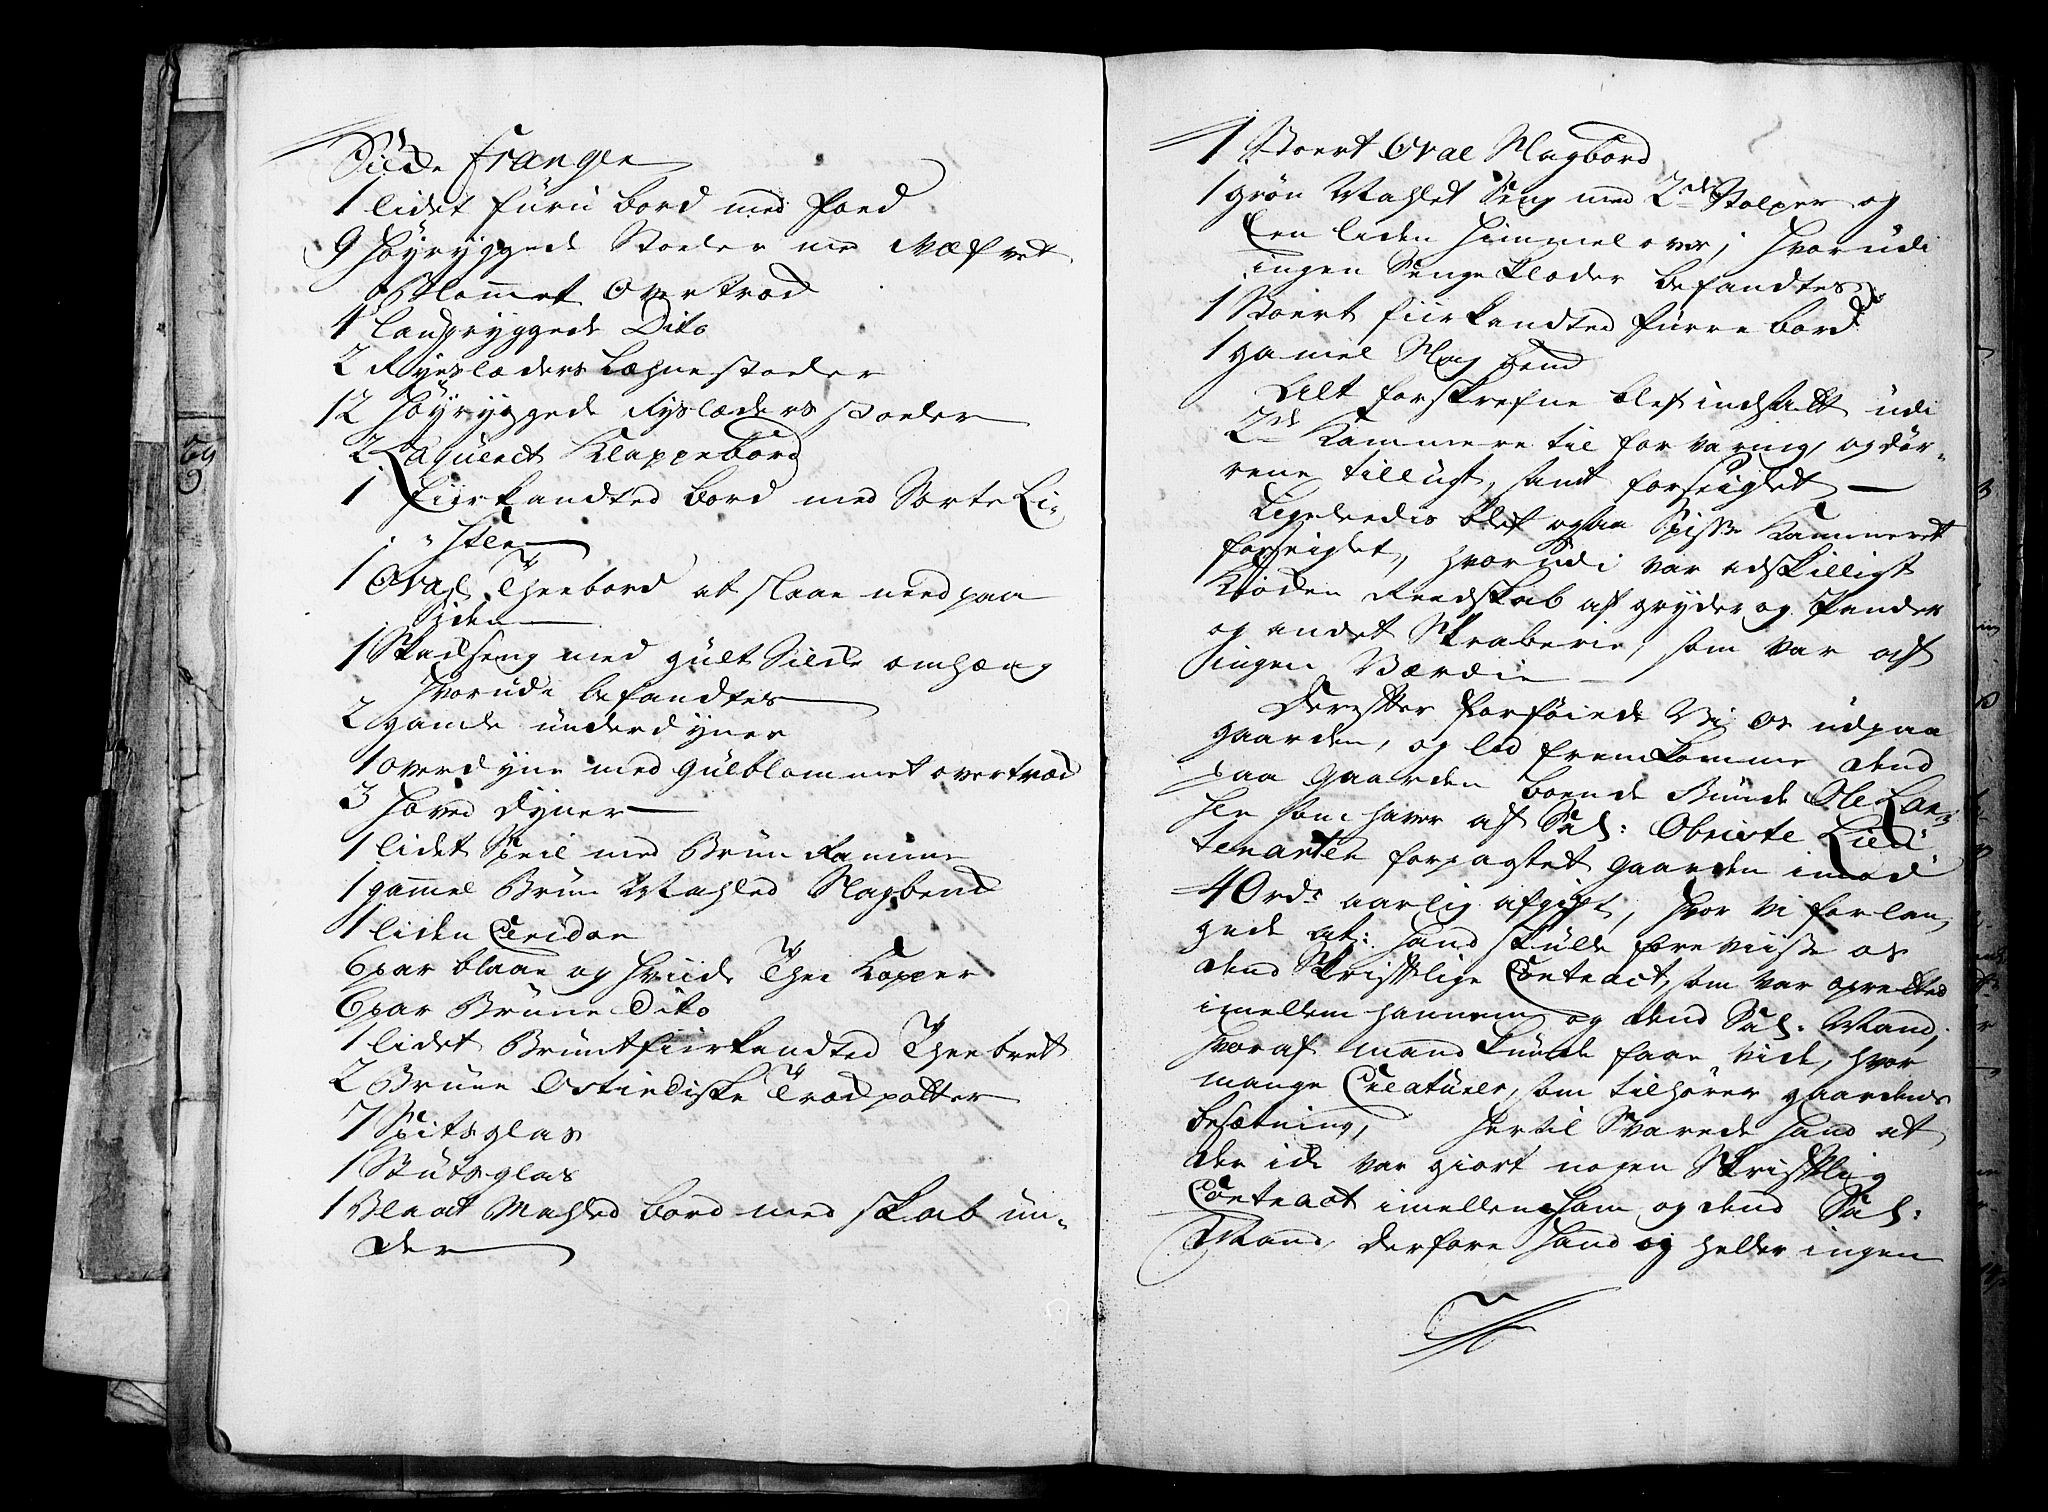 Silde frangen
1 lidet furu bord med Foed
9 Høyryggede Stoeler med Næfvet
blommet Overtræd
4 langryggede Dito
2 Ryeslæders Læhnestoeler
12 Høyryggede Ryslæders stoeler
2 Laqueret Klappebord
1 fiirkandted bord med Sorte Li-
sten
1 Oval Theebord at slaae need paa
Siden
1 Stadseng med gult Silde omhæng
Hvorudi befandtes
2 gamle underdyner
1 overdyne med gulblommet overtræd
3 Hoved dyner
1 lidet Speil med Bruun Ramme
1 gammel Bruun Mahled Slagbenck
1 liden Gueridon
6 par blaae og Hviide Thee Kopper
6 par Bruune Dito
1 lidet Bruunt fiirkandted Theebrett
2 Bruune Ostindiske Trædpotter
7 Spitsglas
1 Stutsglas
1 Blaat Mahled bord med skab un-
der
1 Stoert Oval Slagbord
1 grøn Mahlet Seng med 2de Stolper og
Een liden Himmel over; Hvorudi
ingen Senge Klæder befandtes
1 Stoert fiirkandted furre bord
1 gamel Slag benck
Alt forskrefne blef indsatt udi
2de Kammere til forvaring, og dør-
rene tillugt, samt forseiglet
Ligeledis blef ogsaa Spisse Kammeret
forseiglet, hvorudi var adskilligt
Kiøcken Reedskab af gryder og Pander
og andet Skraberie, som var af
ingen Værdie
Derefter forføiede Vi Os ud paa
gaarden, og lod fremkomme dend
paa Gaarden boende Bunde Ole Lar-
sen som haver af Sal: Obriste Lieu-
tenanten forpagtet gaarden imod
40 rdr aarlig afgift, hvor Vi forlan-
gede at: hand skulle foreviise os
dend Skriftlige Contract, som var opretted
imellem hannem og dend Sal: Mand,
hvoraf mand kunde faae Vide, hvor
mange Creaturer, som tilhører gaardens
besætning, Hertil Svarede hand at
der icke var giort nogen Skriftlig
Contract imellem ham og dend Sal:
Mand, derfore hand og heller ingen